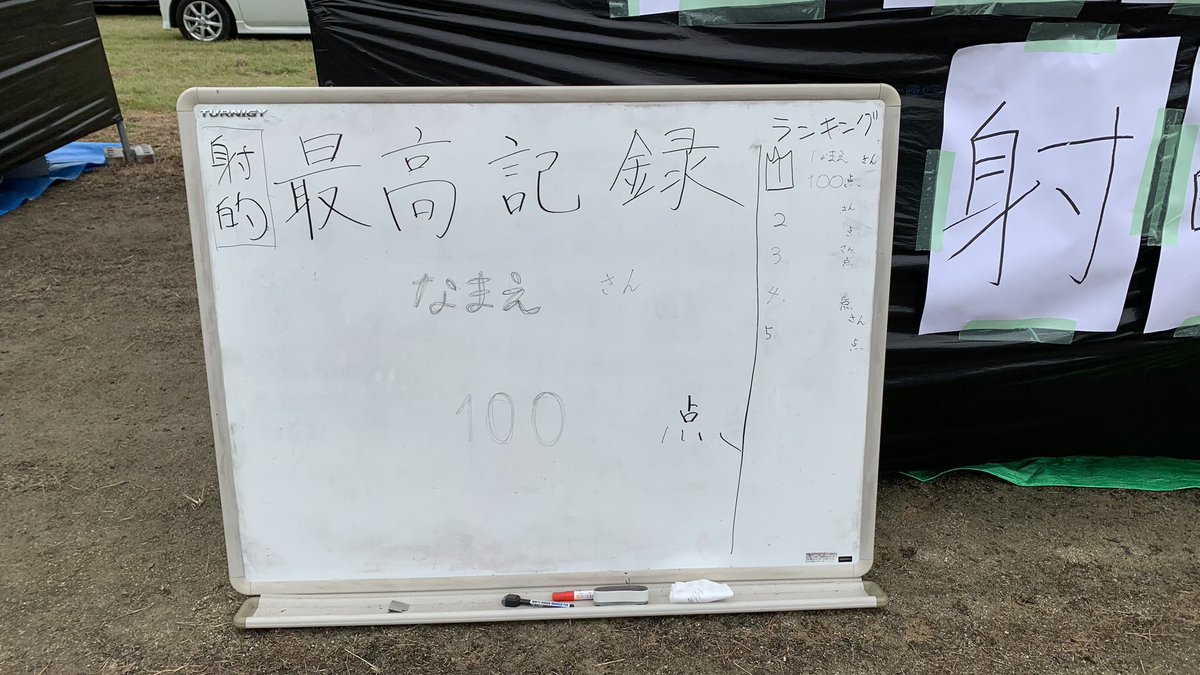 TURNIGY
射的
最高記録
なまえ さん
100 点
ランキング
1 なまえ さん
100点
さん
2 点
3 さん
点
4 点
さん
5 点
射